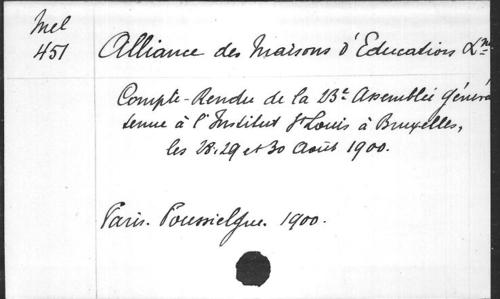 Mel
451
Alliance des Maisons d'Education
Compte-Rendu de la 23e Assemblée Généra
tenue à l'Institut St Louis à Bruxelles,
les 28, 29 et 30 Août 1900.
Paris. Poussielgue. 1900.